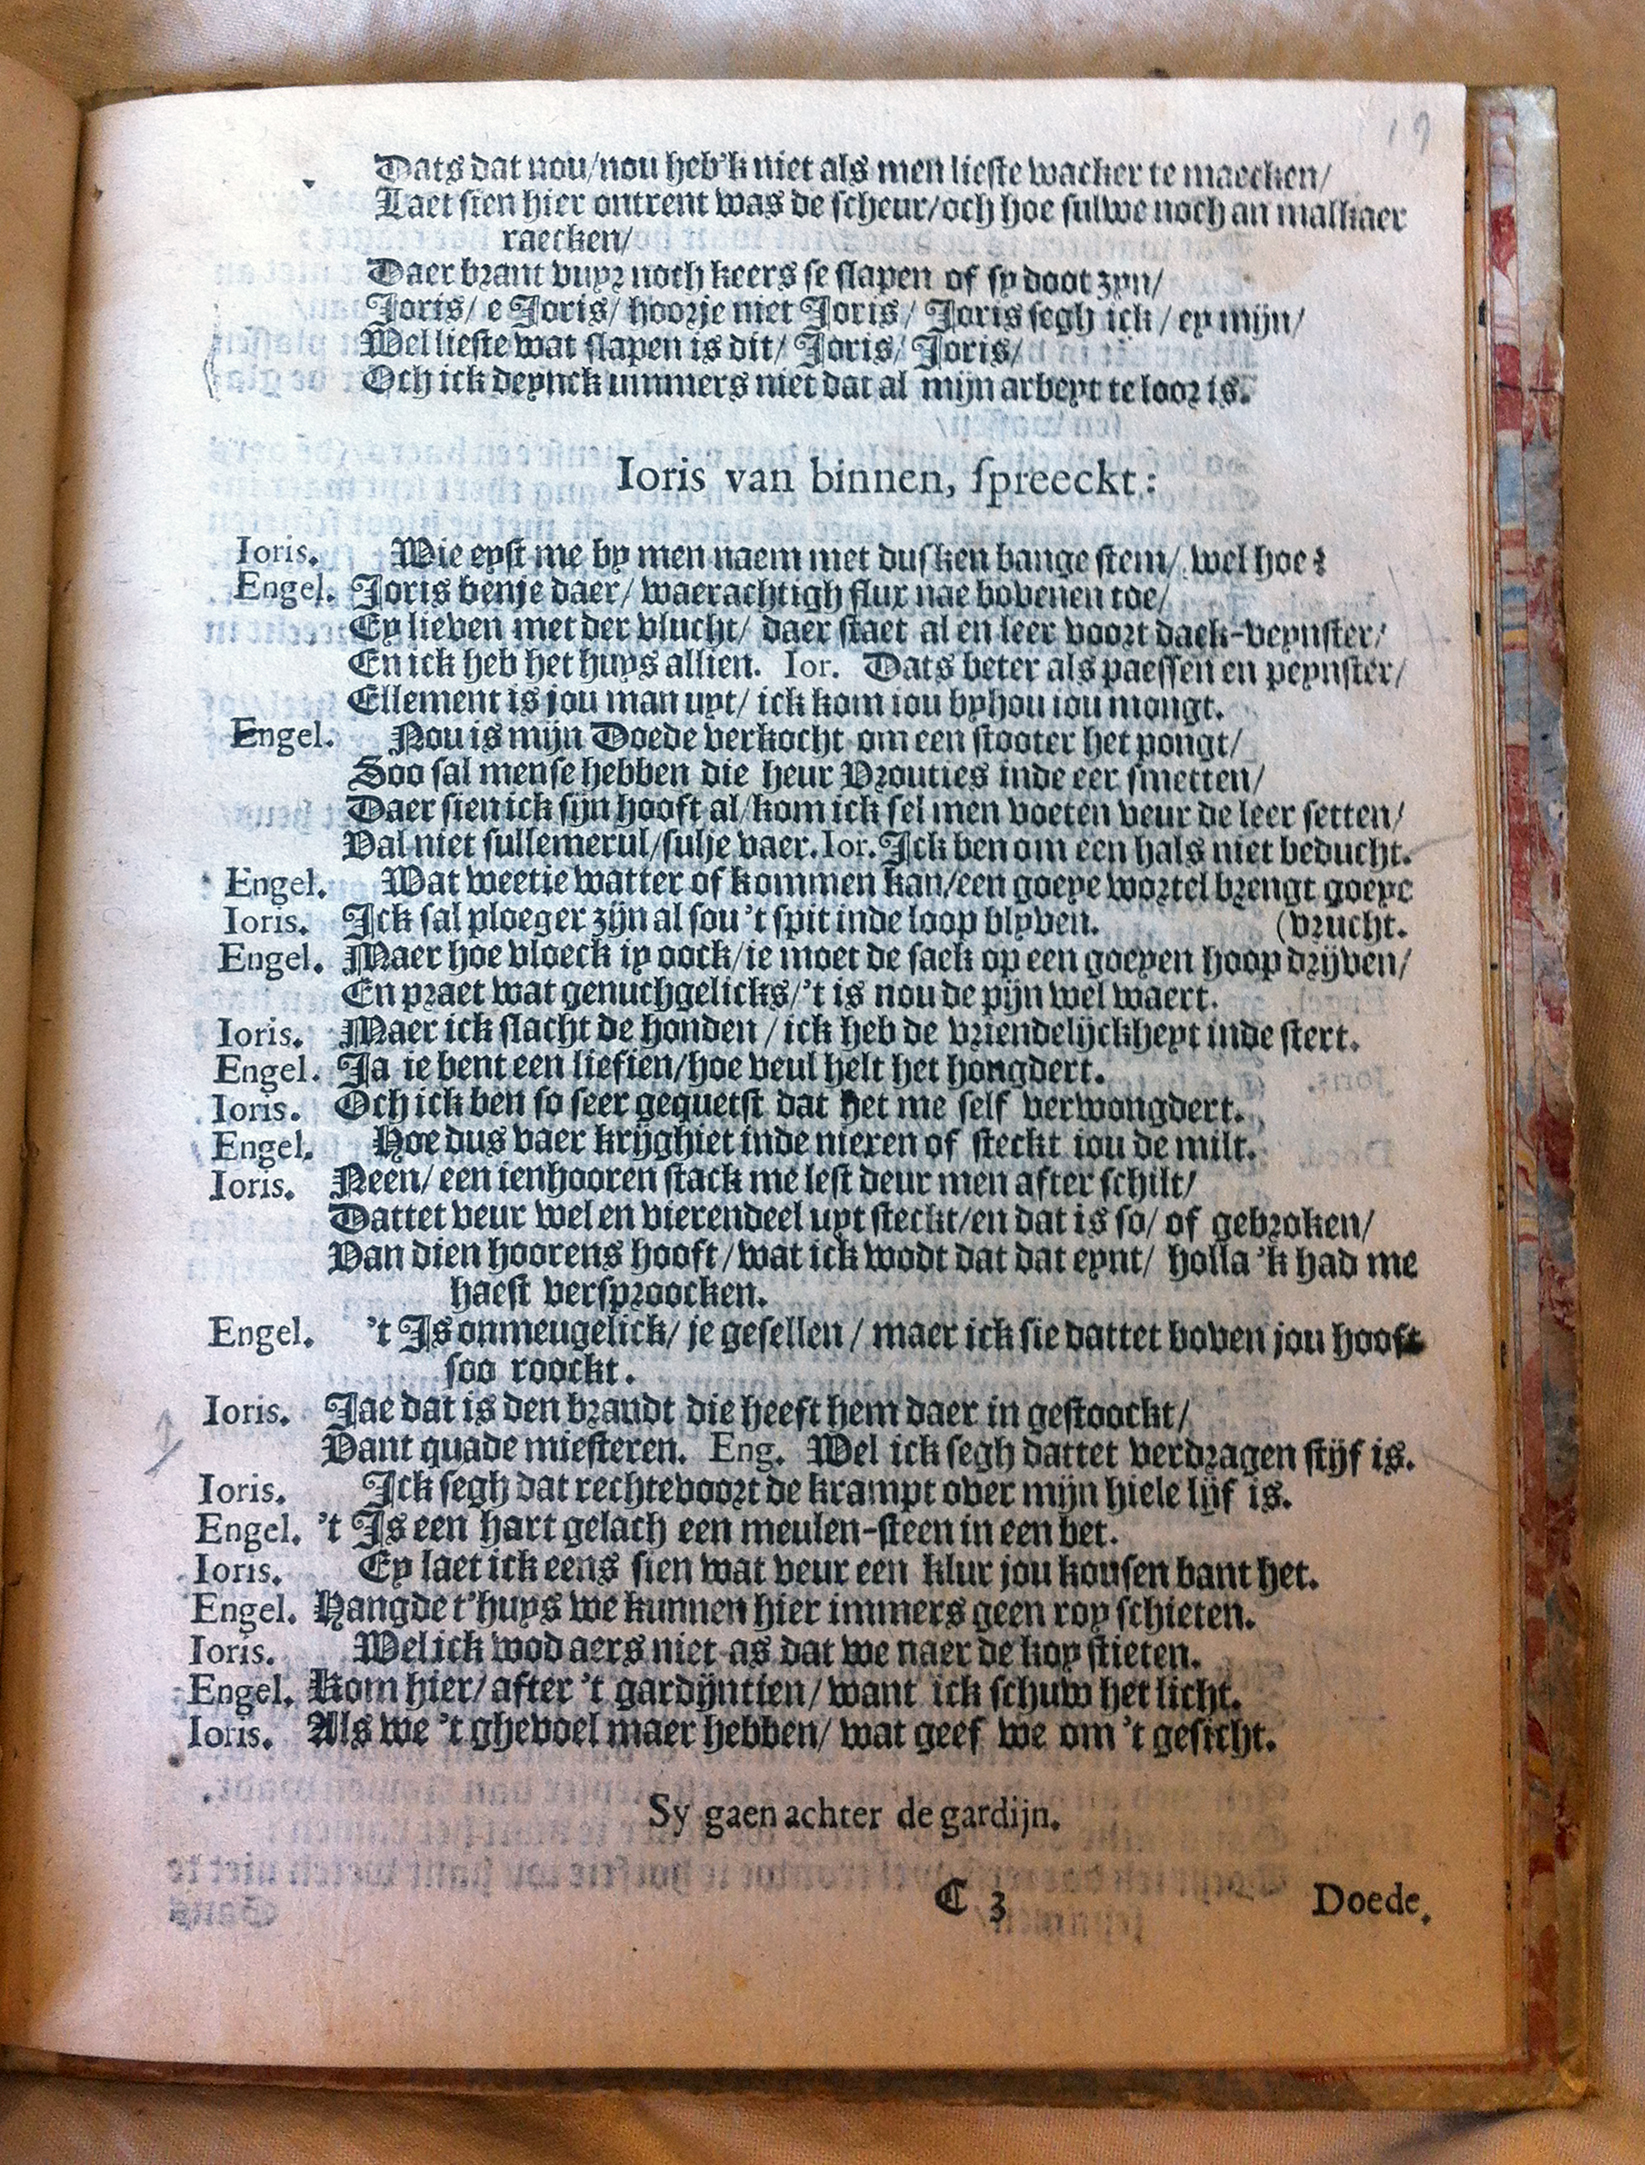 19
Dats dat nou/nou heb'k niet als men lieste wacker te maecken/
Laet sien hier ontrent was de scheur/och hoe sulwe noch an malkaer
raecken/
Daer brant vuyr noch keers se slapen of sy doot zyn/
Joris/ e Joris/ hoorje niet Joris/ Joris segh ick/ ey mijn/
Wel lieste wat slapen is dit/ Joris/ Joris/
Och ick deynck ummers niet dat al mijn arbeyt te loor is.
Ioris van binnen, spreeckt:
Ioris. Wie eyst me by men naem met dusken bange stem/ wel hoe?
Engel. Joris benje daer/ waerachtigh flux nae bovenen toe/
Ey lieven met der vlucht/ daer staet al en leer voort dack-veynster/
En ick heb het huys allien. Ior. Dats beter als paessen en peynster/
Ellement is jou man uyt/ ick kom iou byhou iou mongt.
Engel. Nou is mijn Doede verkocht om een stooter het pongt/
Soo sal mense hebben die heur Vrouties inde eer smetten/
Daer sien ick sijn hooft al/kom ick sel men voeten veur de leer setten/
Val niet sullemerul/sulje vaer. Ior. Ick ben om een hals niet beducht.
Engel. Wat weetie watter of kommen kan/een goeye wortel brengt goeye
Ioris. Ick sal ploeger zijn al sou 't spit inde loop blyven. (vrucht.
Engel. Maer hoe vloeck iy oock/ie moet de sack op een goeyen hoop drijven/
En praet wat genuchgelicks/'t is nou de pijn wel waert.
Ioris. Maer ick slacht de honden/ ick heb de vriendelijckheyt inde stert.
Engel. Ja ie bent een liefien/hoe veul helt het hongdert.
Ioris. Och ick ben so seer gequetst dat het me self verwongdert.
Engel. Hoe dus vaer krijghiet inde nieren of steckt iou de milt.
Ioris. Neen/ een ienhooren stack me lest deur men after schilt/
Dattet veur wel en vierendeel uyt steckt/en dat is so/ of gebroken/
Van dien hoorens hooft/wat ick wodt dat dat eynt/ holla 'k had me
haest versproocken.
Engel. 't Is onmeugelick/ je gesellen/ maer ick sie dattet boven jou hooft
soo roockt.
Ioris. Jae dat is den brandt die heeft hem daer in gestoockt/
Vant quade miesteren. Eng. Wel ick segh dattet verdragen stijf is.
Ioris. Ick segh dat rechtevoort de krampt over mijn hiele lijf is.
Engel. 't Is een hart gelach een meulen-steen in een bet.
Ioris. Ey laet ick eens sien wat veur een klur jou kousen bant het.
Engel. Hangde t'huys we kunnen hier immers geen roy schieten.
Ioris. Wel ick wod aers niet as dat we naer de koy stieten.
Engel. Kom hier/ after 't gardijntien/ want ick schuw het licht.
Ioris. Als we 't ghevoel maer hebben/ wat geef we om 't gesicht.
Sy gaen achter de gardijn.
C 3 Doede.